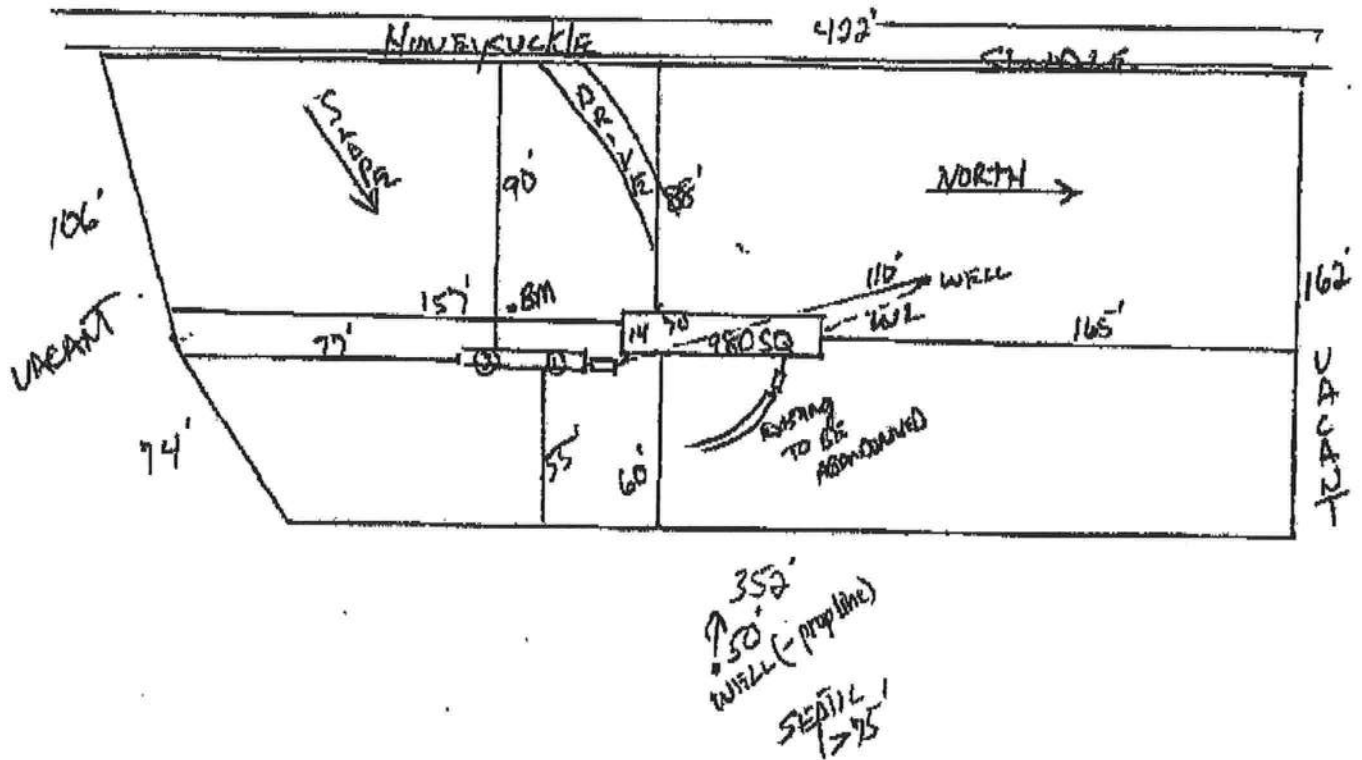 422'
HONEYSUCKLE
SLOPE
DRIVE
90'
88'
NORTH
106'
VACANT
157'
.BM
110'
WELL
WL
162'
77'
2
1
14
980 SQ
165'
VACANT
74'
55'
60'
EXISTING
TO BE
ABANDONED
352'
50'
WELL (- prop line)
SEPTIC
>75'